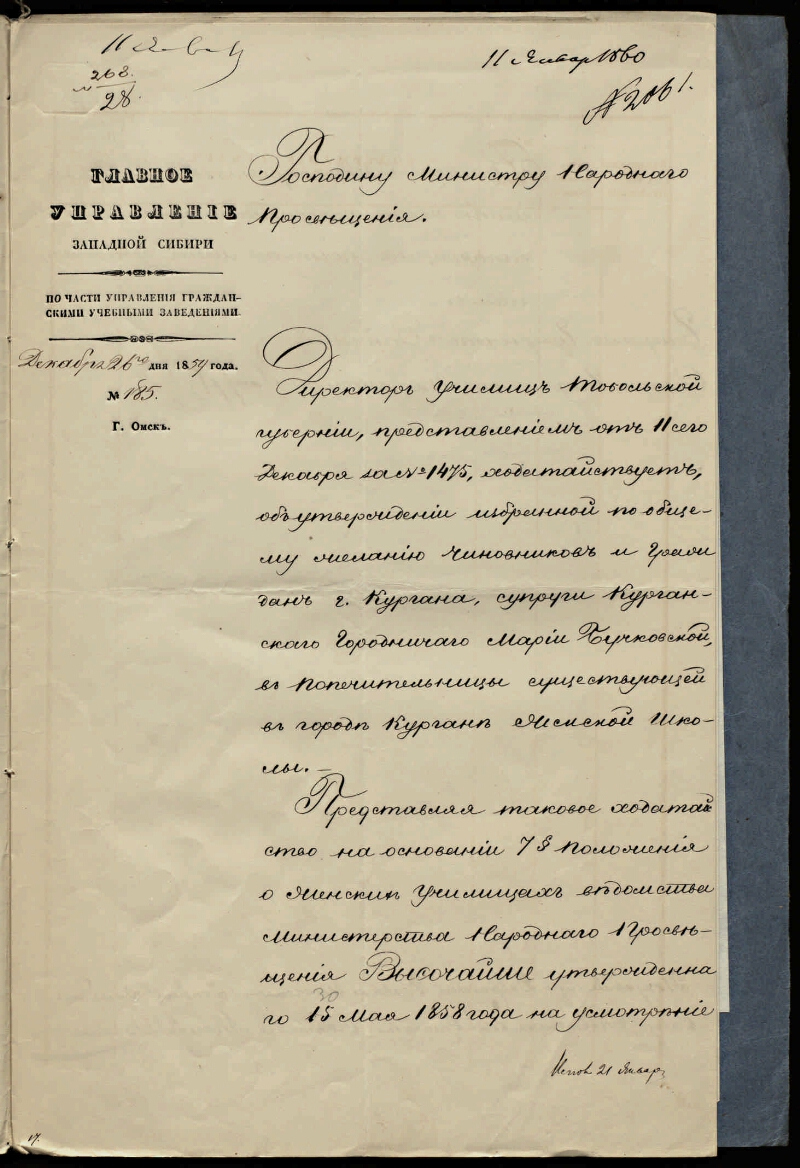 11 Январ 1860
№ 2061.
268.
28.
ГЛАВНОЕ
УПРАВЛЕНІЕ
ЗАПАДНОЙ СИБИРИ
ПО ЧАСТИ УПРАВЛЕНІЯ ГРАЖДАН-
СКИМИ УЧЕБНЫМИ ЗАВЕДЕНІЯМИ.
Декабря 26го дня 1859 года.
№ 185.
Г. Омскъ.
Господину Министру Народнаго
Просвѣщенія.
Директоръ Училищъ Тобольской
губерніи, представленіемъ отъ 11 сего
Декабря за № 1475, ходатайствуетъ,
объ утвержденіи избранной по обще-
му желанію Чиновниковъ и Граж
данъ г. Кургана, супруги Курган-
скаго Городничаго Маріи Бучковской,
въ Попечительницы существующей
въ городѣ Курганѣ Женской Шко-
лы.—
Представляя таковое ходатай
ство на основаніи 7 § Положенія
о Женскихъ Училищахъ вѣдомства
Министерства Народнаго Просвѣ-
щенія Высочайше утвержденна
го 30 15 Мая 1858 года на усмотрѣніе
21 Январ
17.